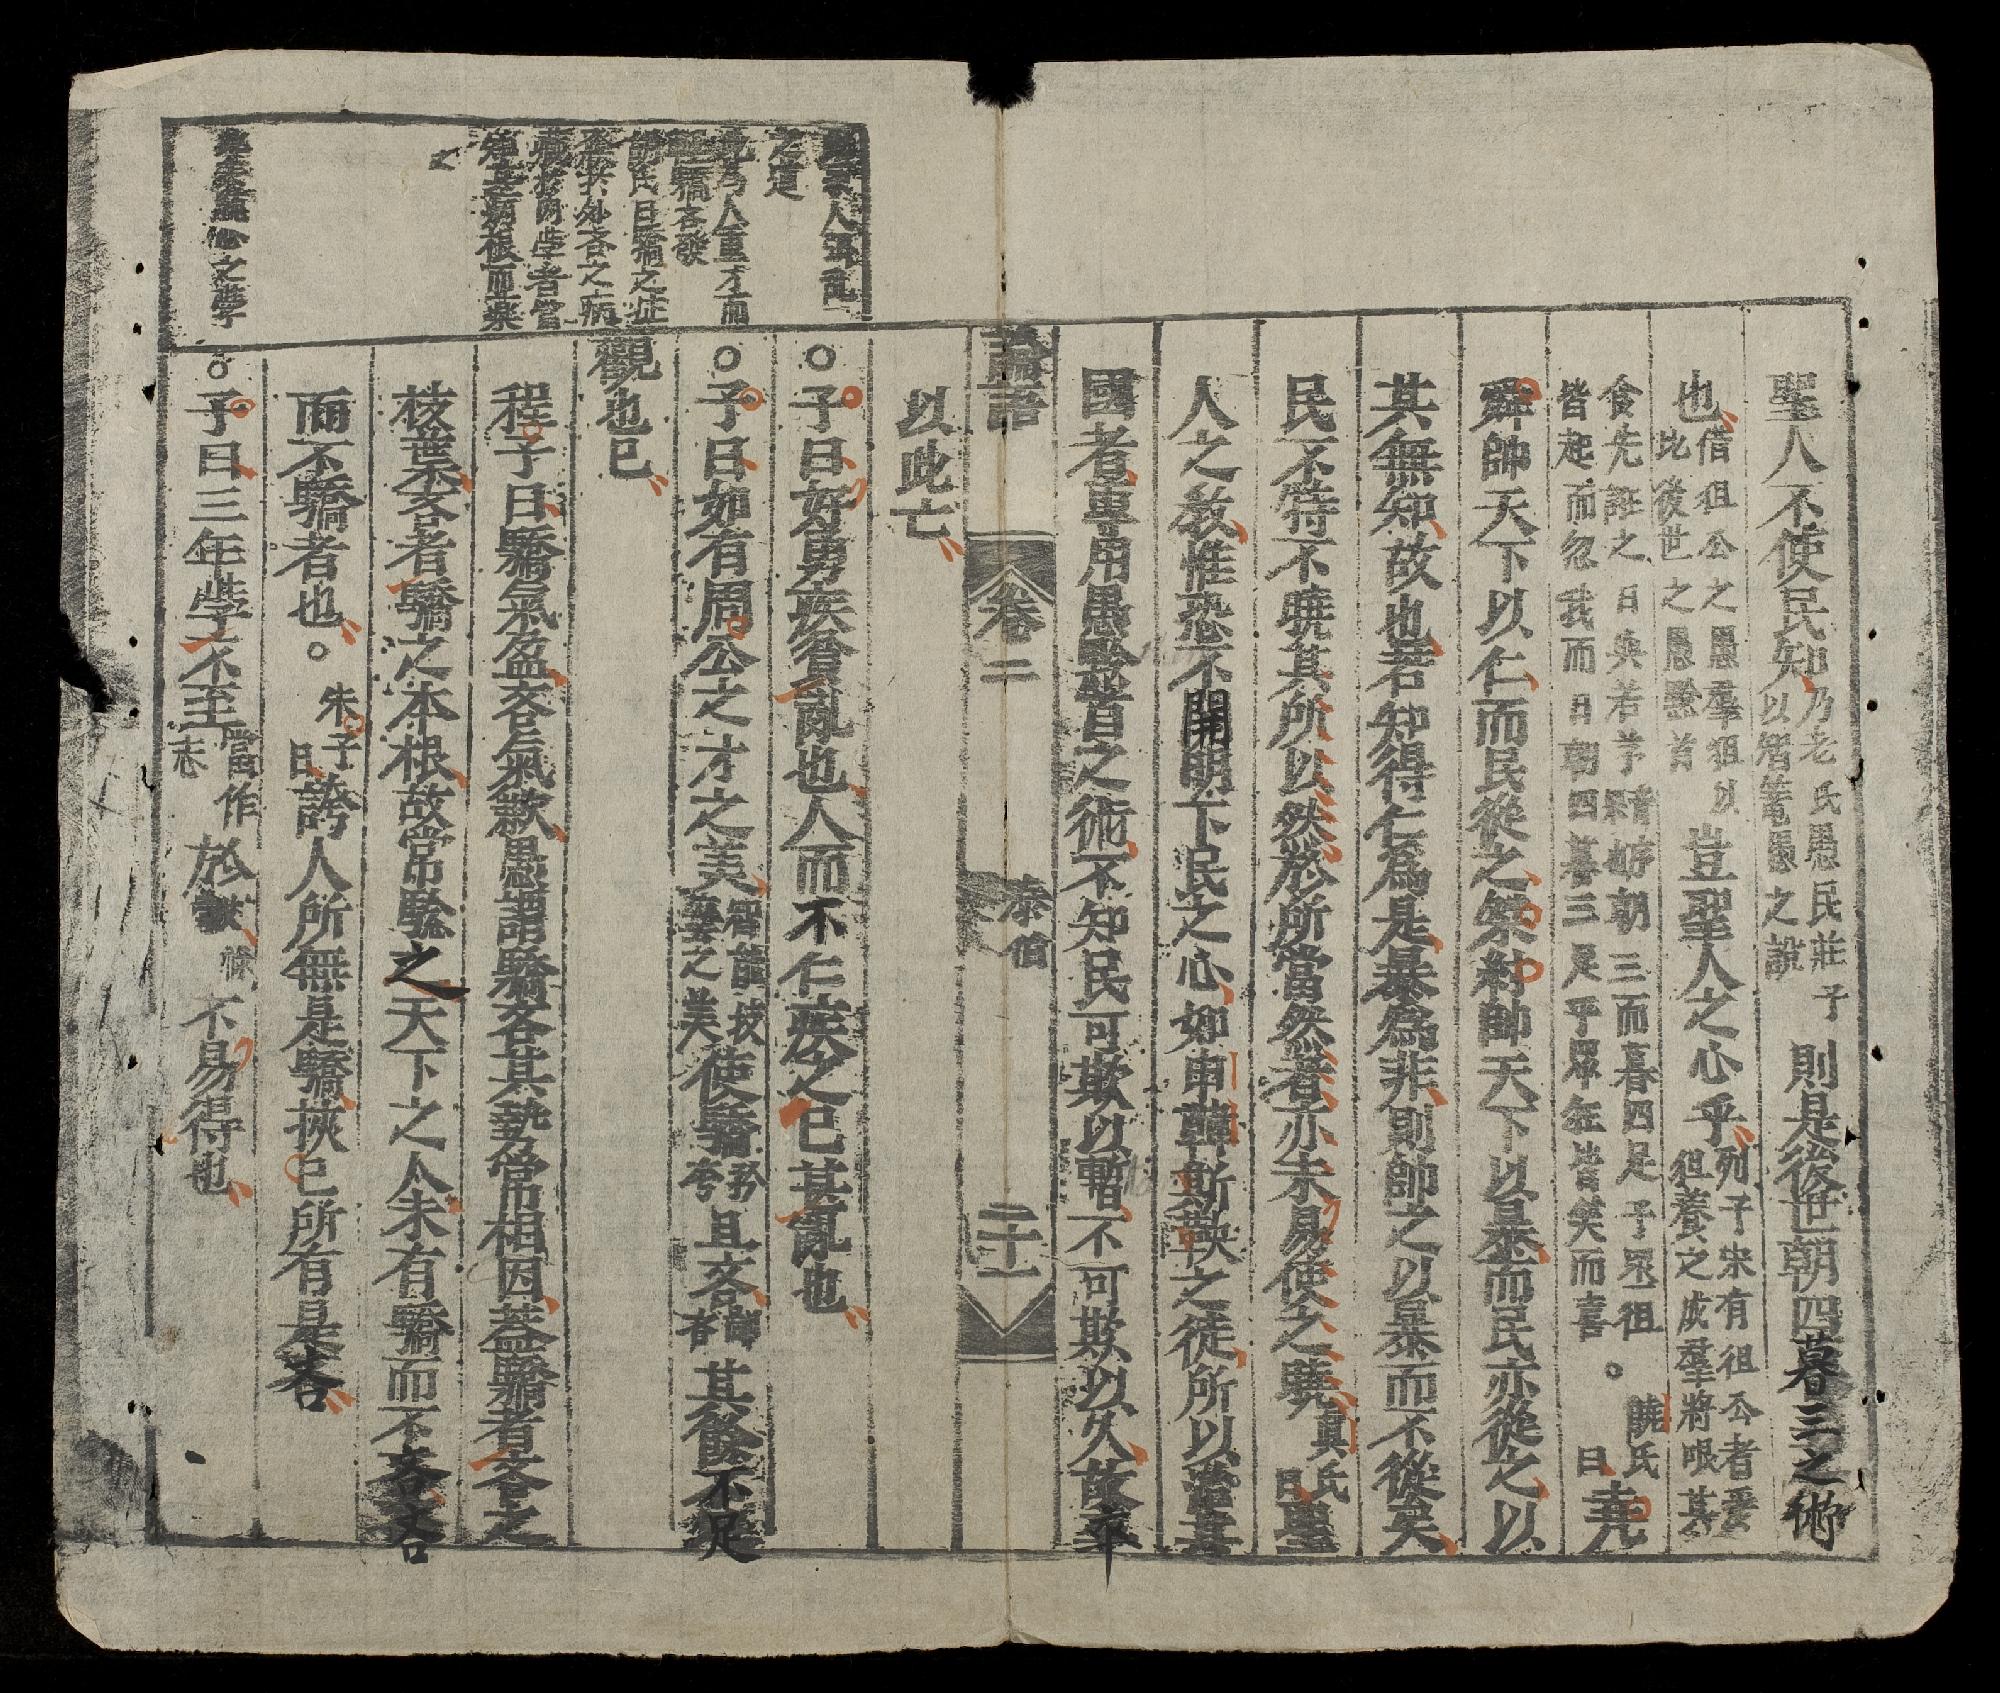 聖人不使民知乃老氏愚民莊子以智篭愚之說則是後世朝四暮三之術
也借狙公之愚羣狙以比後世之愚黔首豈聖人之心乎列子宋有狙公者愛狙養之成羣將限其
食先誑之曰與若芧朝三而暮四足乎眾狙皆起而怒我而曰朝四暮三足乎眾狂皆笑而喜。饒氏曰堯
舜帥天下以仁而民從之桀紂帥天下以暴而民亦從之以
其無知故也若知得仁爲是暴爲非則帥之以暴而不從矣
民不特不曉其所以然於所當然者亦未易使之曉真氏曰聖
人之教惟恐不開明下民之心如申韓斯鞅之徒所以治其
國者專用愚黔首之術不知民可欺以暫不可欺以久故卒
論語 卷二 泰伯 二十一
以此亡
○子曰好勇疾貧亂也人而不仁疾之已甚亂也
○子曰如有周公之才之美智能技藝之美使驕矜夸且吝鄙吝其餘不足
觀也已
程子曰驕氣盈吝氣歉愚謂驕吝其勢常相因蓋驕者吝之
枝葉吝者驕之本根故嘗驗之天下之人未有驕而不吝吝
而不驕者也。朱子曰誇人所無是驕挾己所有是吝
○子曰三年學不至當作志於穀祿不易得也
之道
為人重才而
驕吝發
饒氏曰驕之症
發於外吝之病
藏於內學者當
知其病根而藥
之學